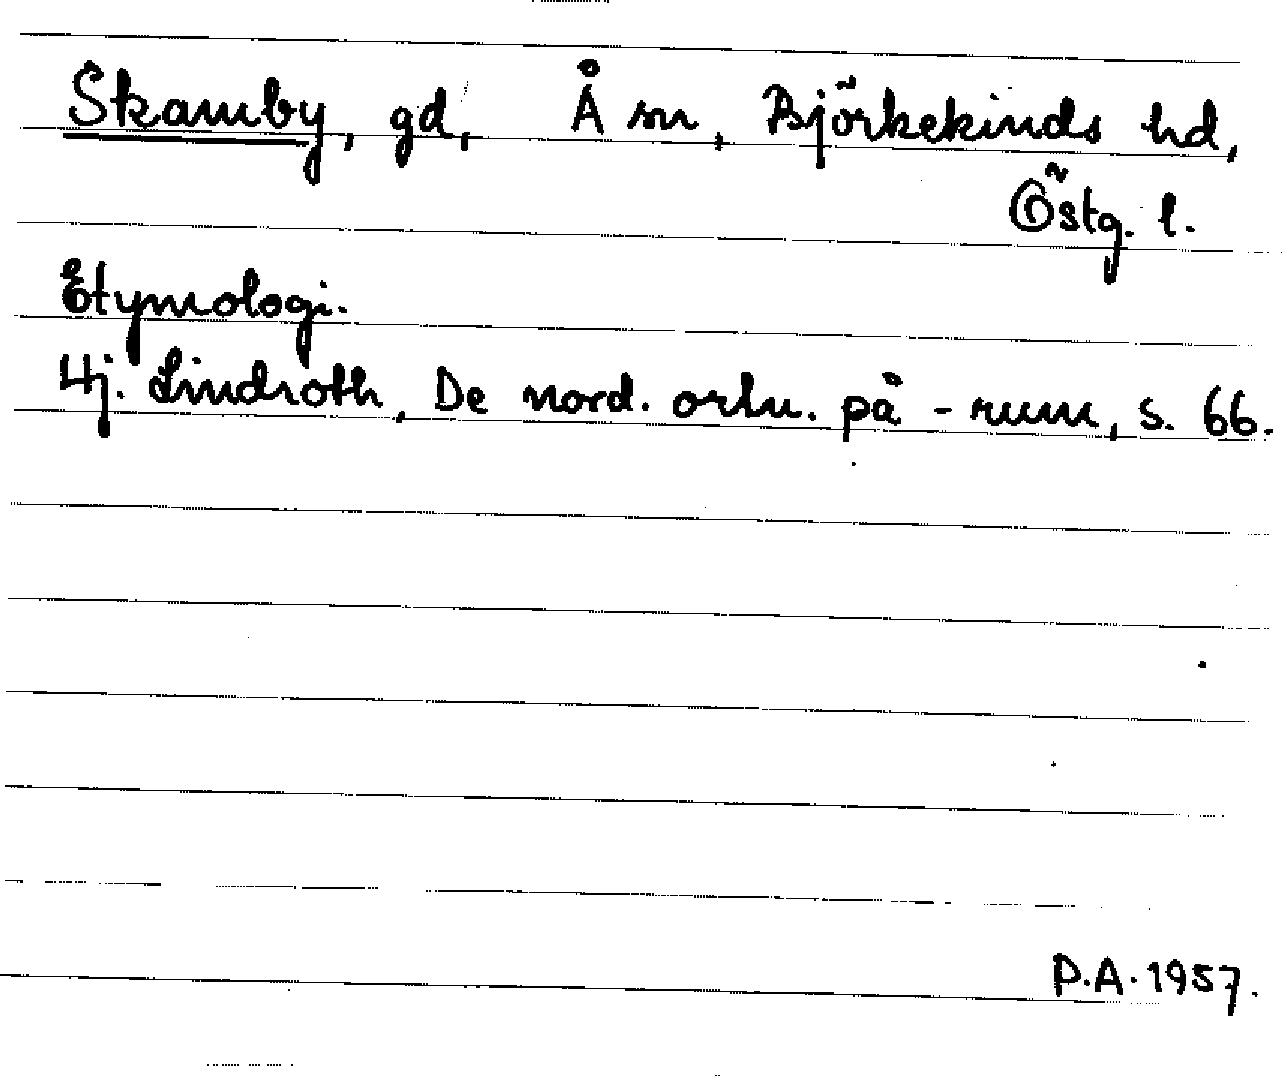 Skamby, gd, Å sn, Björkekinds hd,
Östg. l.
Etymologi.
Hj. Lindroth, De nord. ortn. på -rum, s. 66.
P.A. 1957.